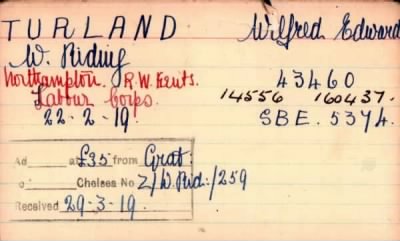 TURLAND Wilfred Edward
W. Riding
Northampton. R.W. Kents. 43460
Labour Corps. 14556 160437.
22-2-19 SBE. 5374.
Ad at £35 from Grat:
to Chelsea No Z/W.Rid:/259
Received 29-3-19.